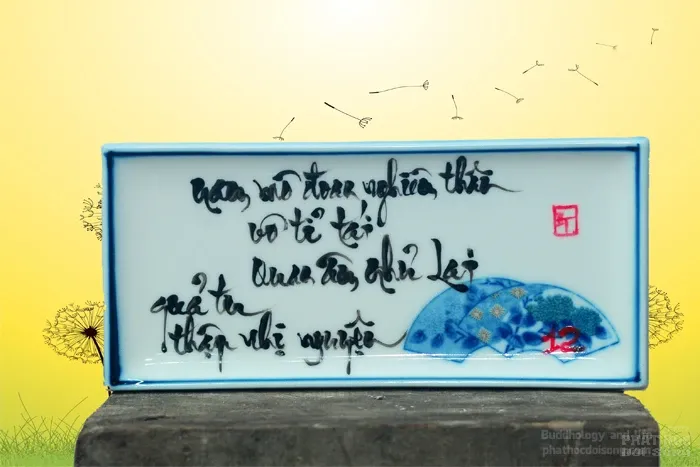 nam mô đoan nghiêm thảo
vô tỉ tái
Quan âm như Lai
quả tu
thập nhị nguyện
12
Buddhology and life
phathocdoisong.com